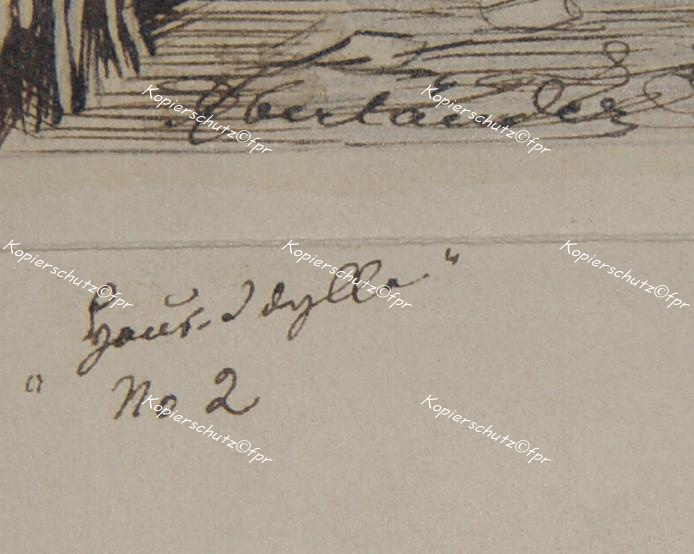 Kopierschutz©fpr Kopierschutz©fpr
Oberländer
Kopierschutz©fpr Kopierschutz©fpr Kopierschutz©fpr
Haus-Idylle"
" No 2
Kopierschutz©fpr Kopierschutz©fpr